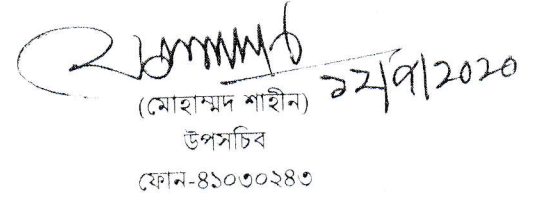 ১২/৭/2020
(মোহাম্মদ শাহীন)
উপসচিব
ফোন-৪১০৩০২৪৩